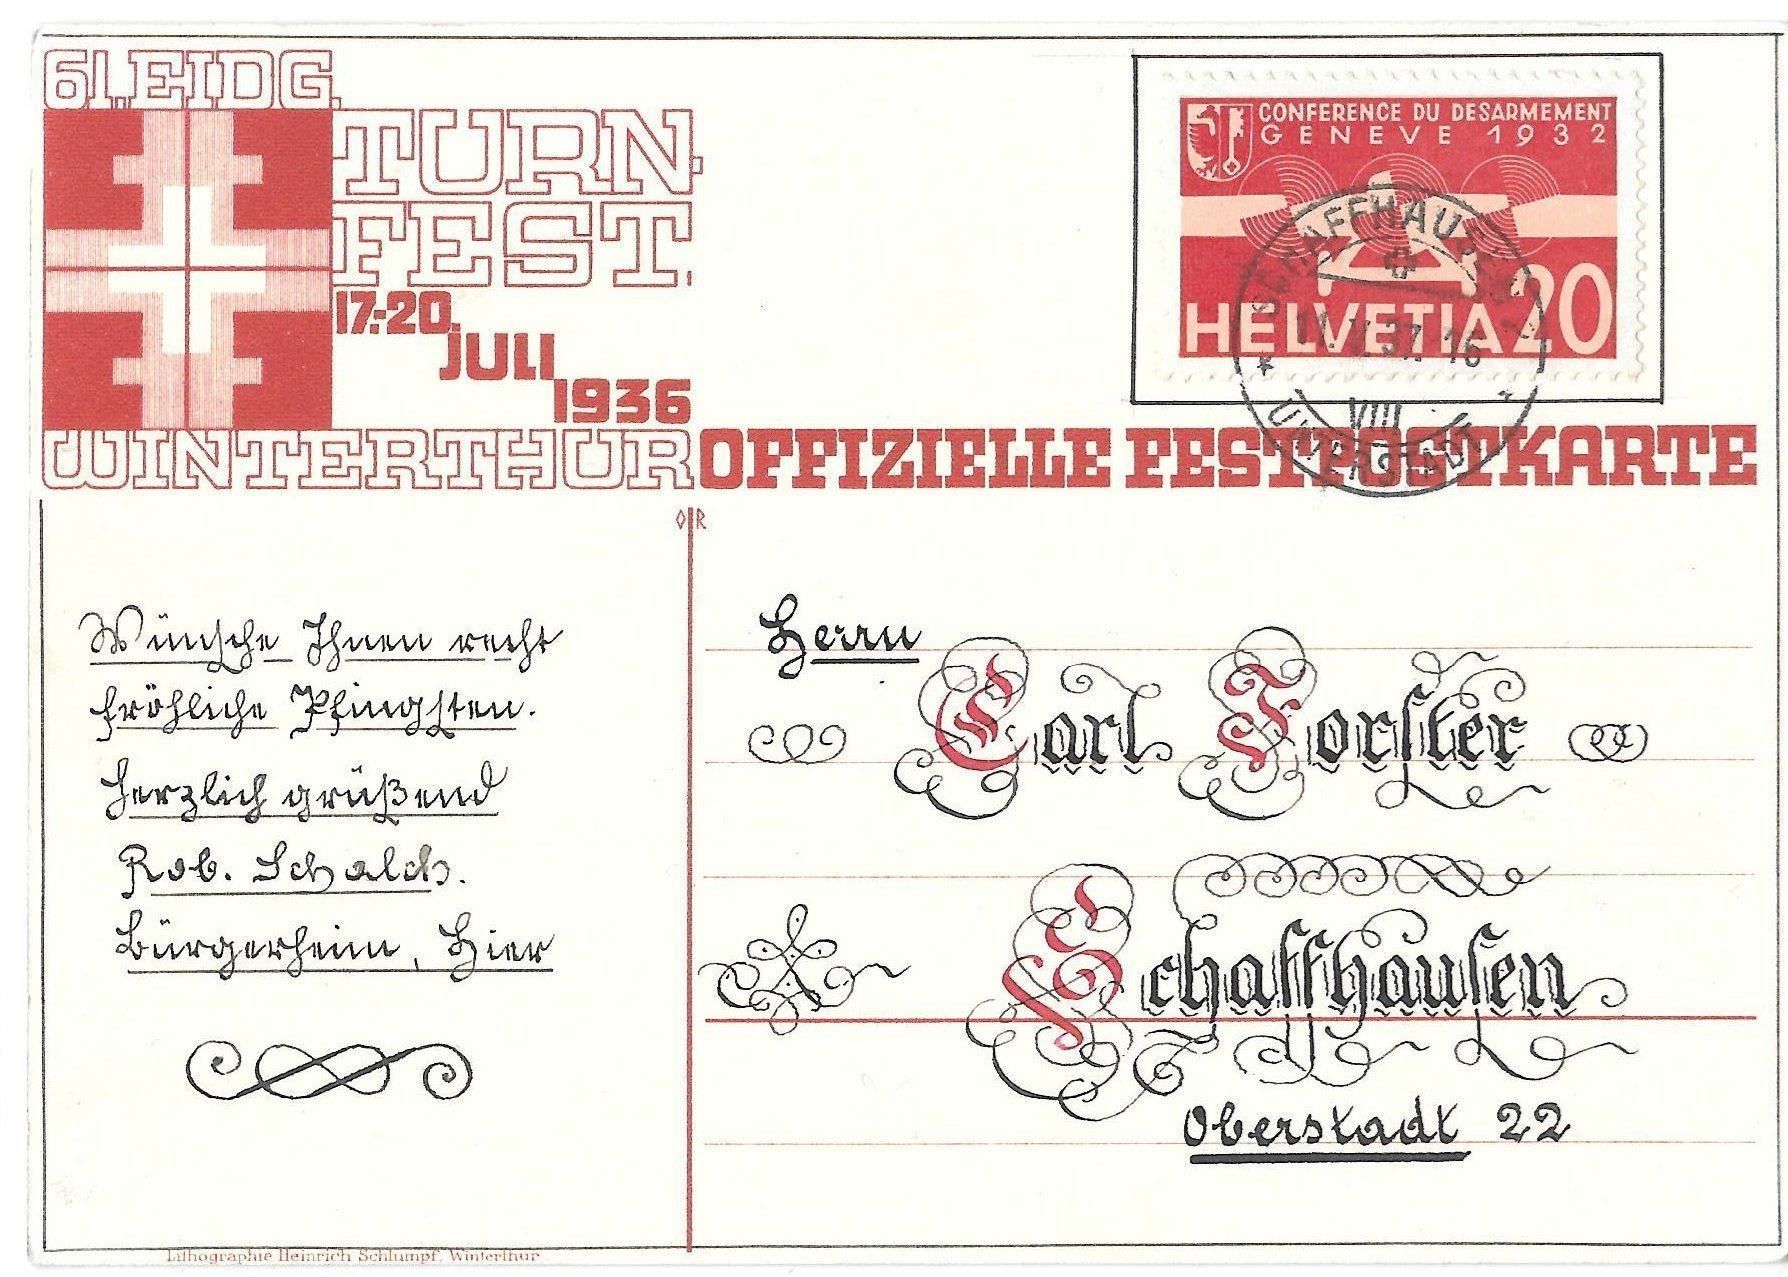 61. EIDG.
TURN-
FEST.
17.-20.
JULI
1936
WINTERTHUR OFFIZIELLE FESTPOSTKARTE
CONFERENCE DU DESARMEMENT
GENEVE 1932
HELVETIA 20
SCHAFFHAUSEN
11.V.37.-16
VIII
UNTERSTADT
Wünsche Ihnen recht
fröhliche Pfingsten.
Herzlich grüßend
Rob. Schalch.
Bürgerheim, Hier
Herrn
Carl Forster
Schaffhausen
Oberstadt 22
Lithographie Heinrich Schlumpf, Winterthur